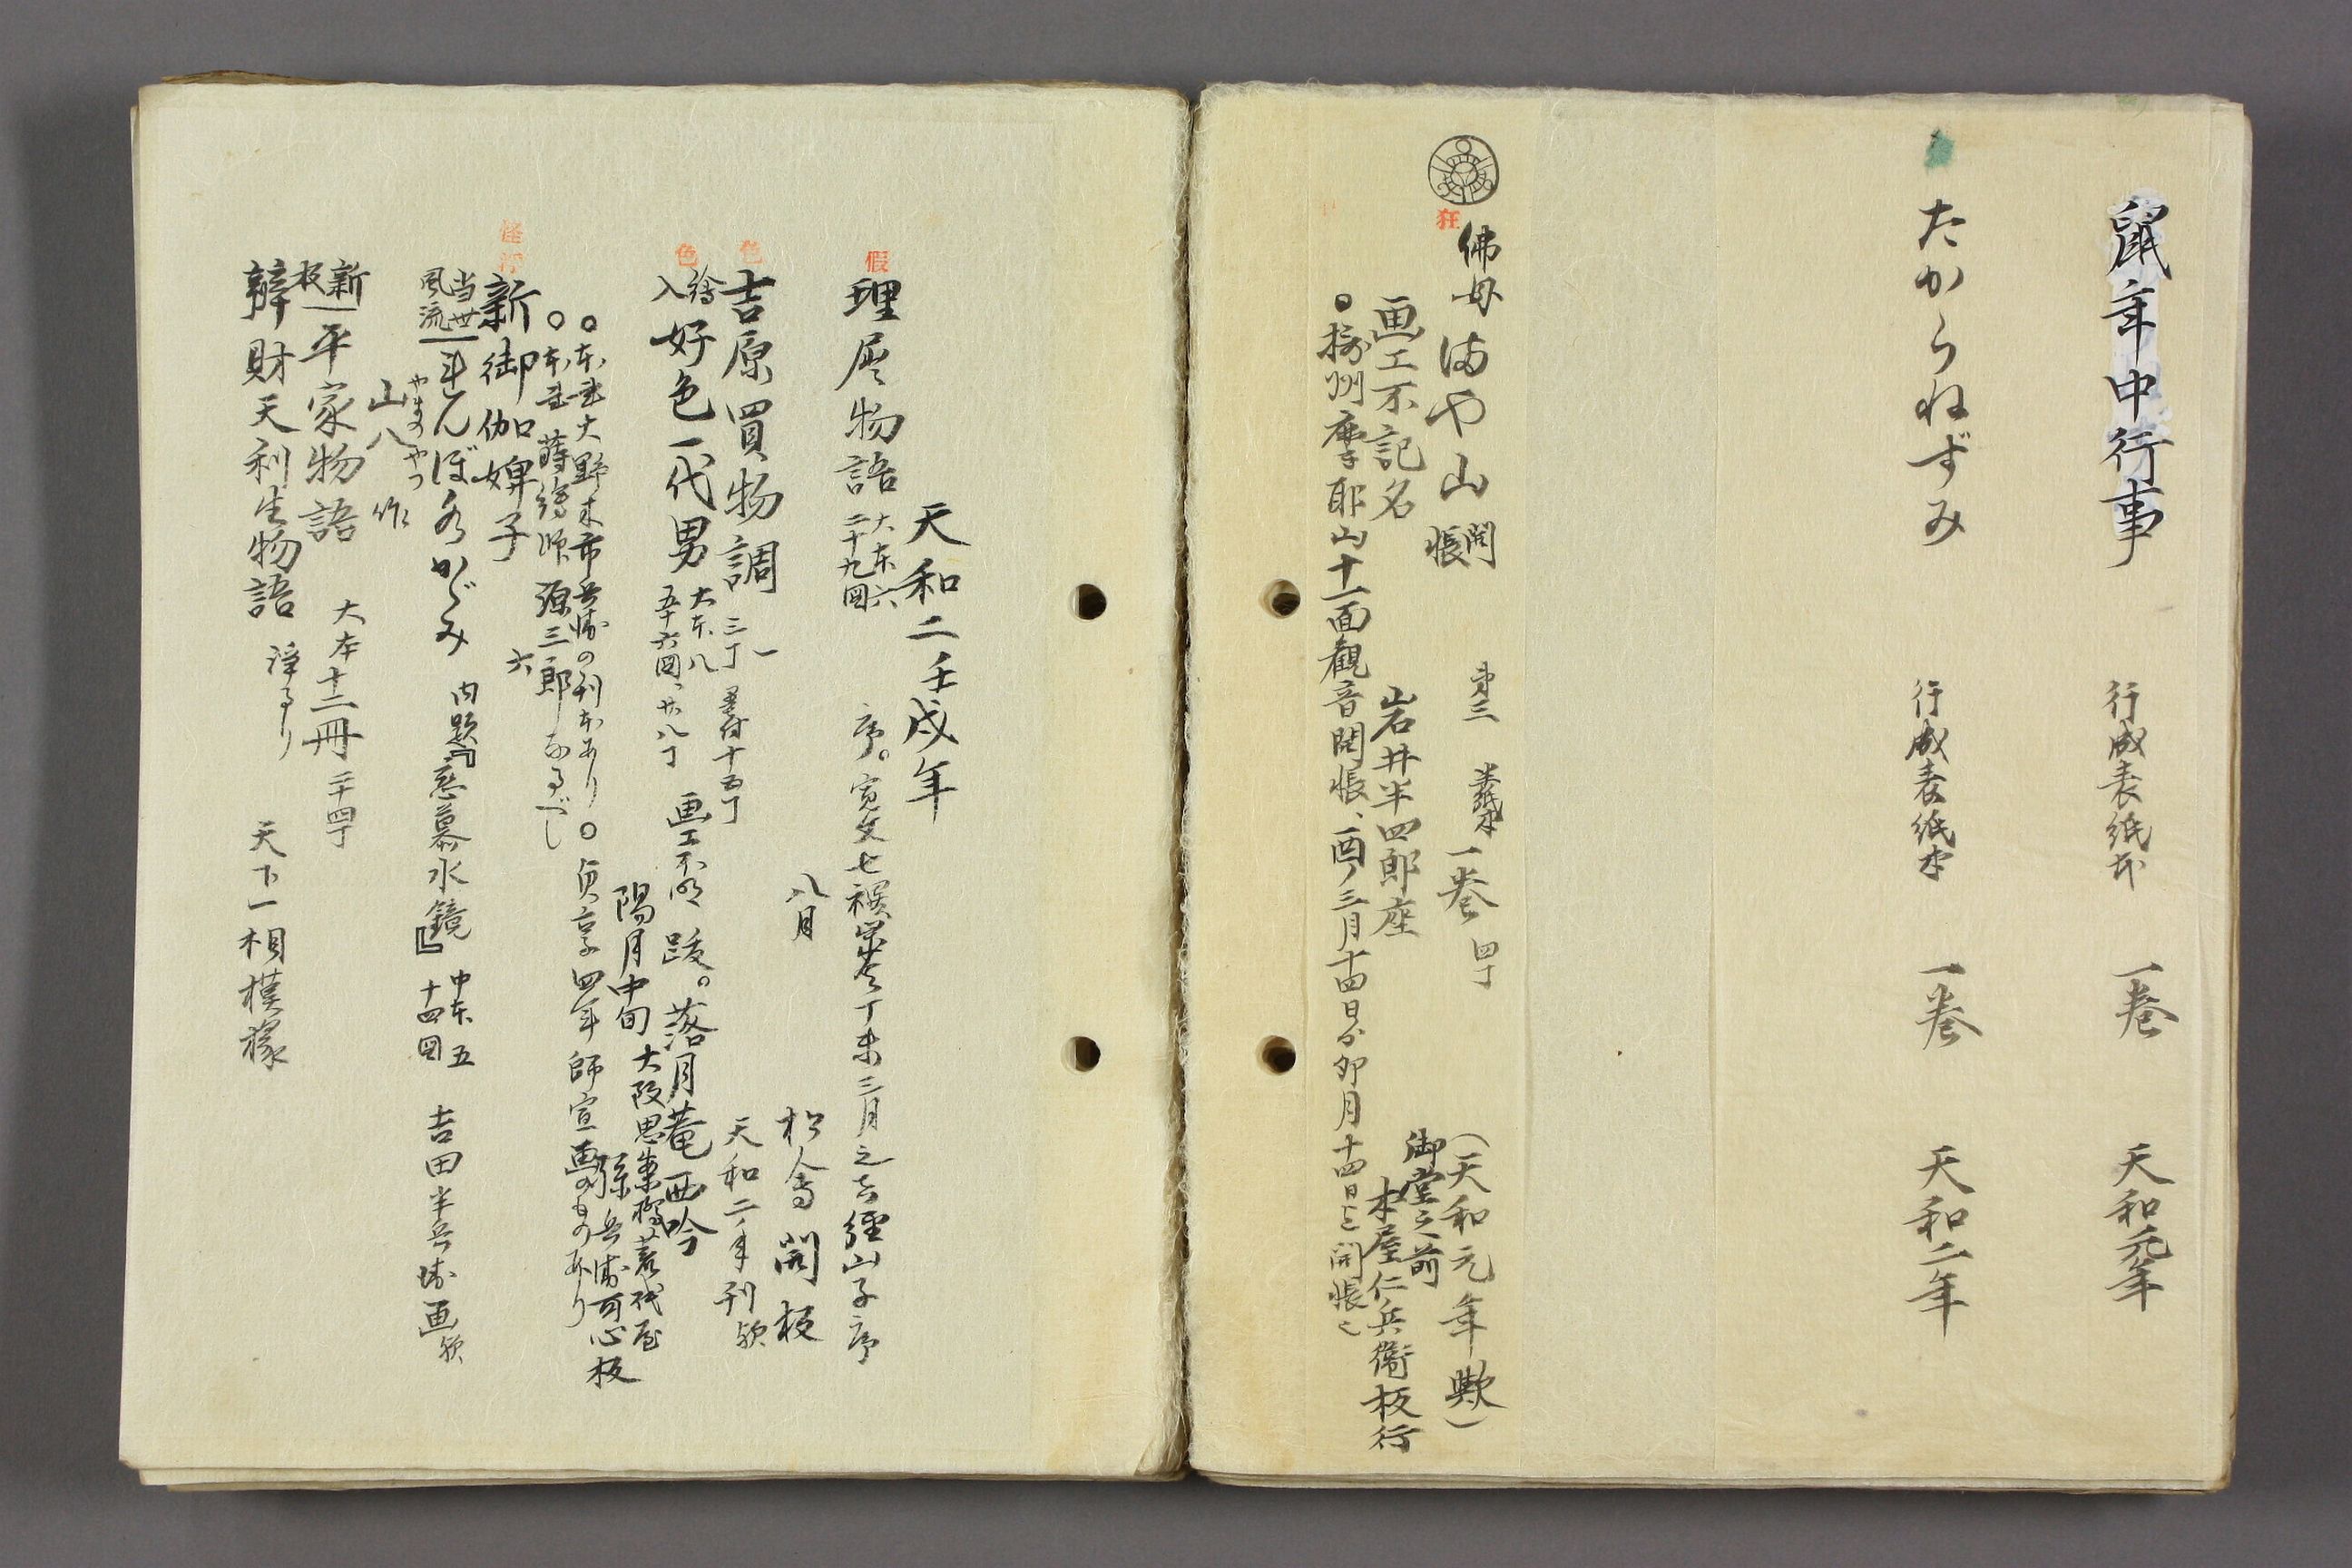 鼠年中行事 行成表紙本 一巻 天和元年
たからねずみ 行成表紙本 一巻 天和二年
狂
佛母 まや山 開帳 第三 一巻 四丁 (天和元年歟)
画工不記名 岩井半四郎座 御堂之前
本屋仁兵衛板行
○摂州摩耶山十一面観音開帳、酉ノ三月十四日ゟ卯月十四日迄開帳也
天和二壬戌年
假
理屈物語 大本六 二十九図 序。寛文七禩 丁未三月之吉經山子序
八月 松會開板
色
吉原買物調 一 三丁 墨付十五丁 天和二年刊歟
色
繪入 好色一代男 大本八 五十六図、廿八丁 画工不明 跋。落月菴西吟
陽月中旬 大阪思案橋荒砥屋
孫兵衛可心板
○本書大野木市兵衛の刊本あり○貞享四年師宣画のものあり
○本書蒔繪師源三郎なるべし
怪
新御伽婢子 六
当世風流 れんぼ水かゞみ 内題『恋慕水鏡』 中本五 十四図 吉田半兵衛画歟
やまのやつ
山八作
新板 平家物語 大本十二冊 二十四丁
辨財天利生物語 浄るり 天下一相模掾